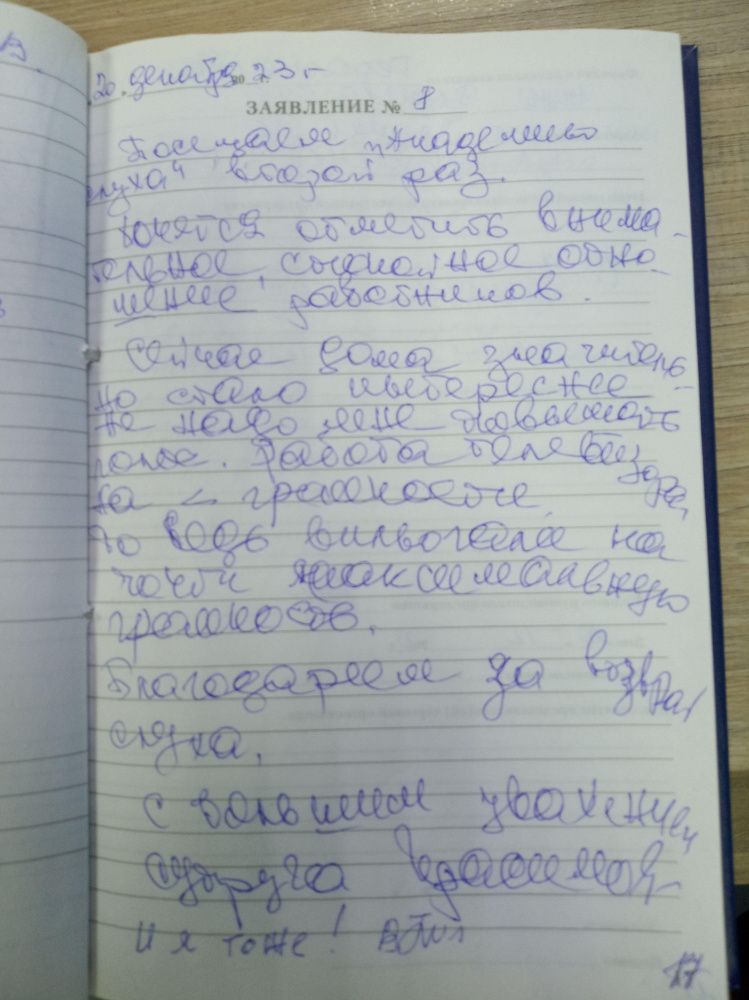 В.
20 декабря 23 г
ЗАЯВЛЕНИЕ № 8
Посещаем "Академию
слуха" второй раз.
Хочется отметить внима-
тельное, отно-
шение работников.
Сейчас дома значитель-
но стало интереснее
не надо мне повышать
голос. Работа телевизора
на громкости,
то ведь включали на
почти максимальную
громкость.
Благодарием за возврат
слуха.
С большим уважением
супруга
И я тоже!
17